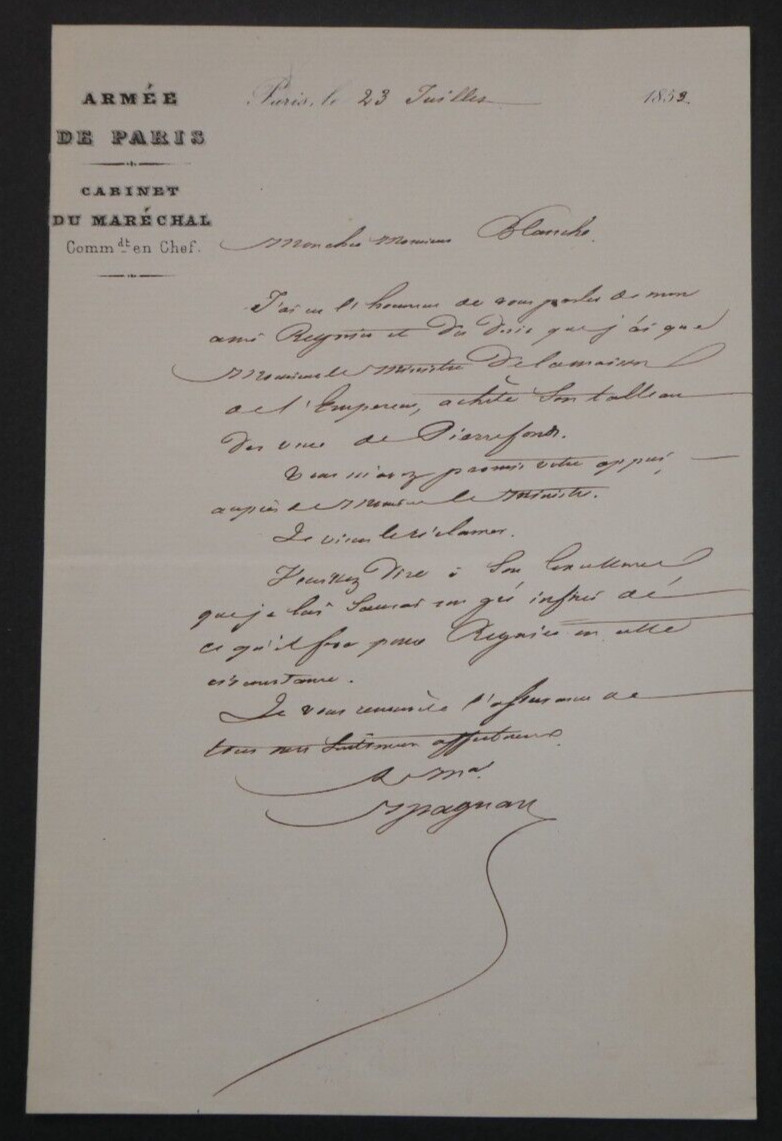 ARMÉE
DE PARIS
CABINET
DU MARÉCHAL
Comm.dt en Chef.
Paris, le 23 Juillet 1859.
Mon cher Monsieur Blanche.
J'ai eu l'honneur de vous parler de mon
ami Regnier et du désir que j'ai que
Monsieur le Ministre De la maison
de l'Empereur, achète son tableau
des vues de Pierrefonds.
Vous m'avez promis votre appui,
auprès de Monsieur le Ministre.
Je viens le réclamer.
Veuillez dire à Son Excellence
que je lui saurai un gré infini de
ce qu'il fera pour Regnier en cette
circonstance.
Je vous renouvèle l'assurance de
tous mes sentimens affectueux.
Le Mal
Magnan